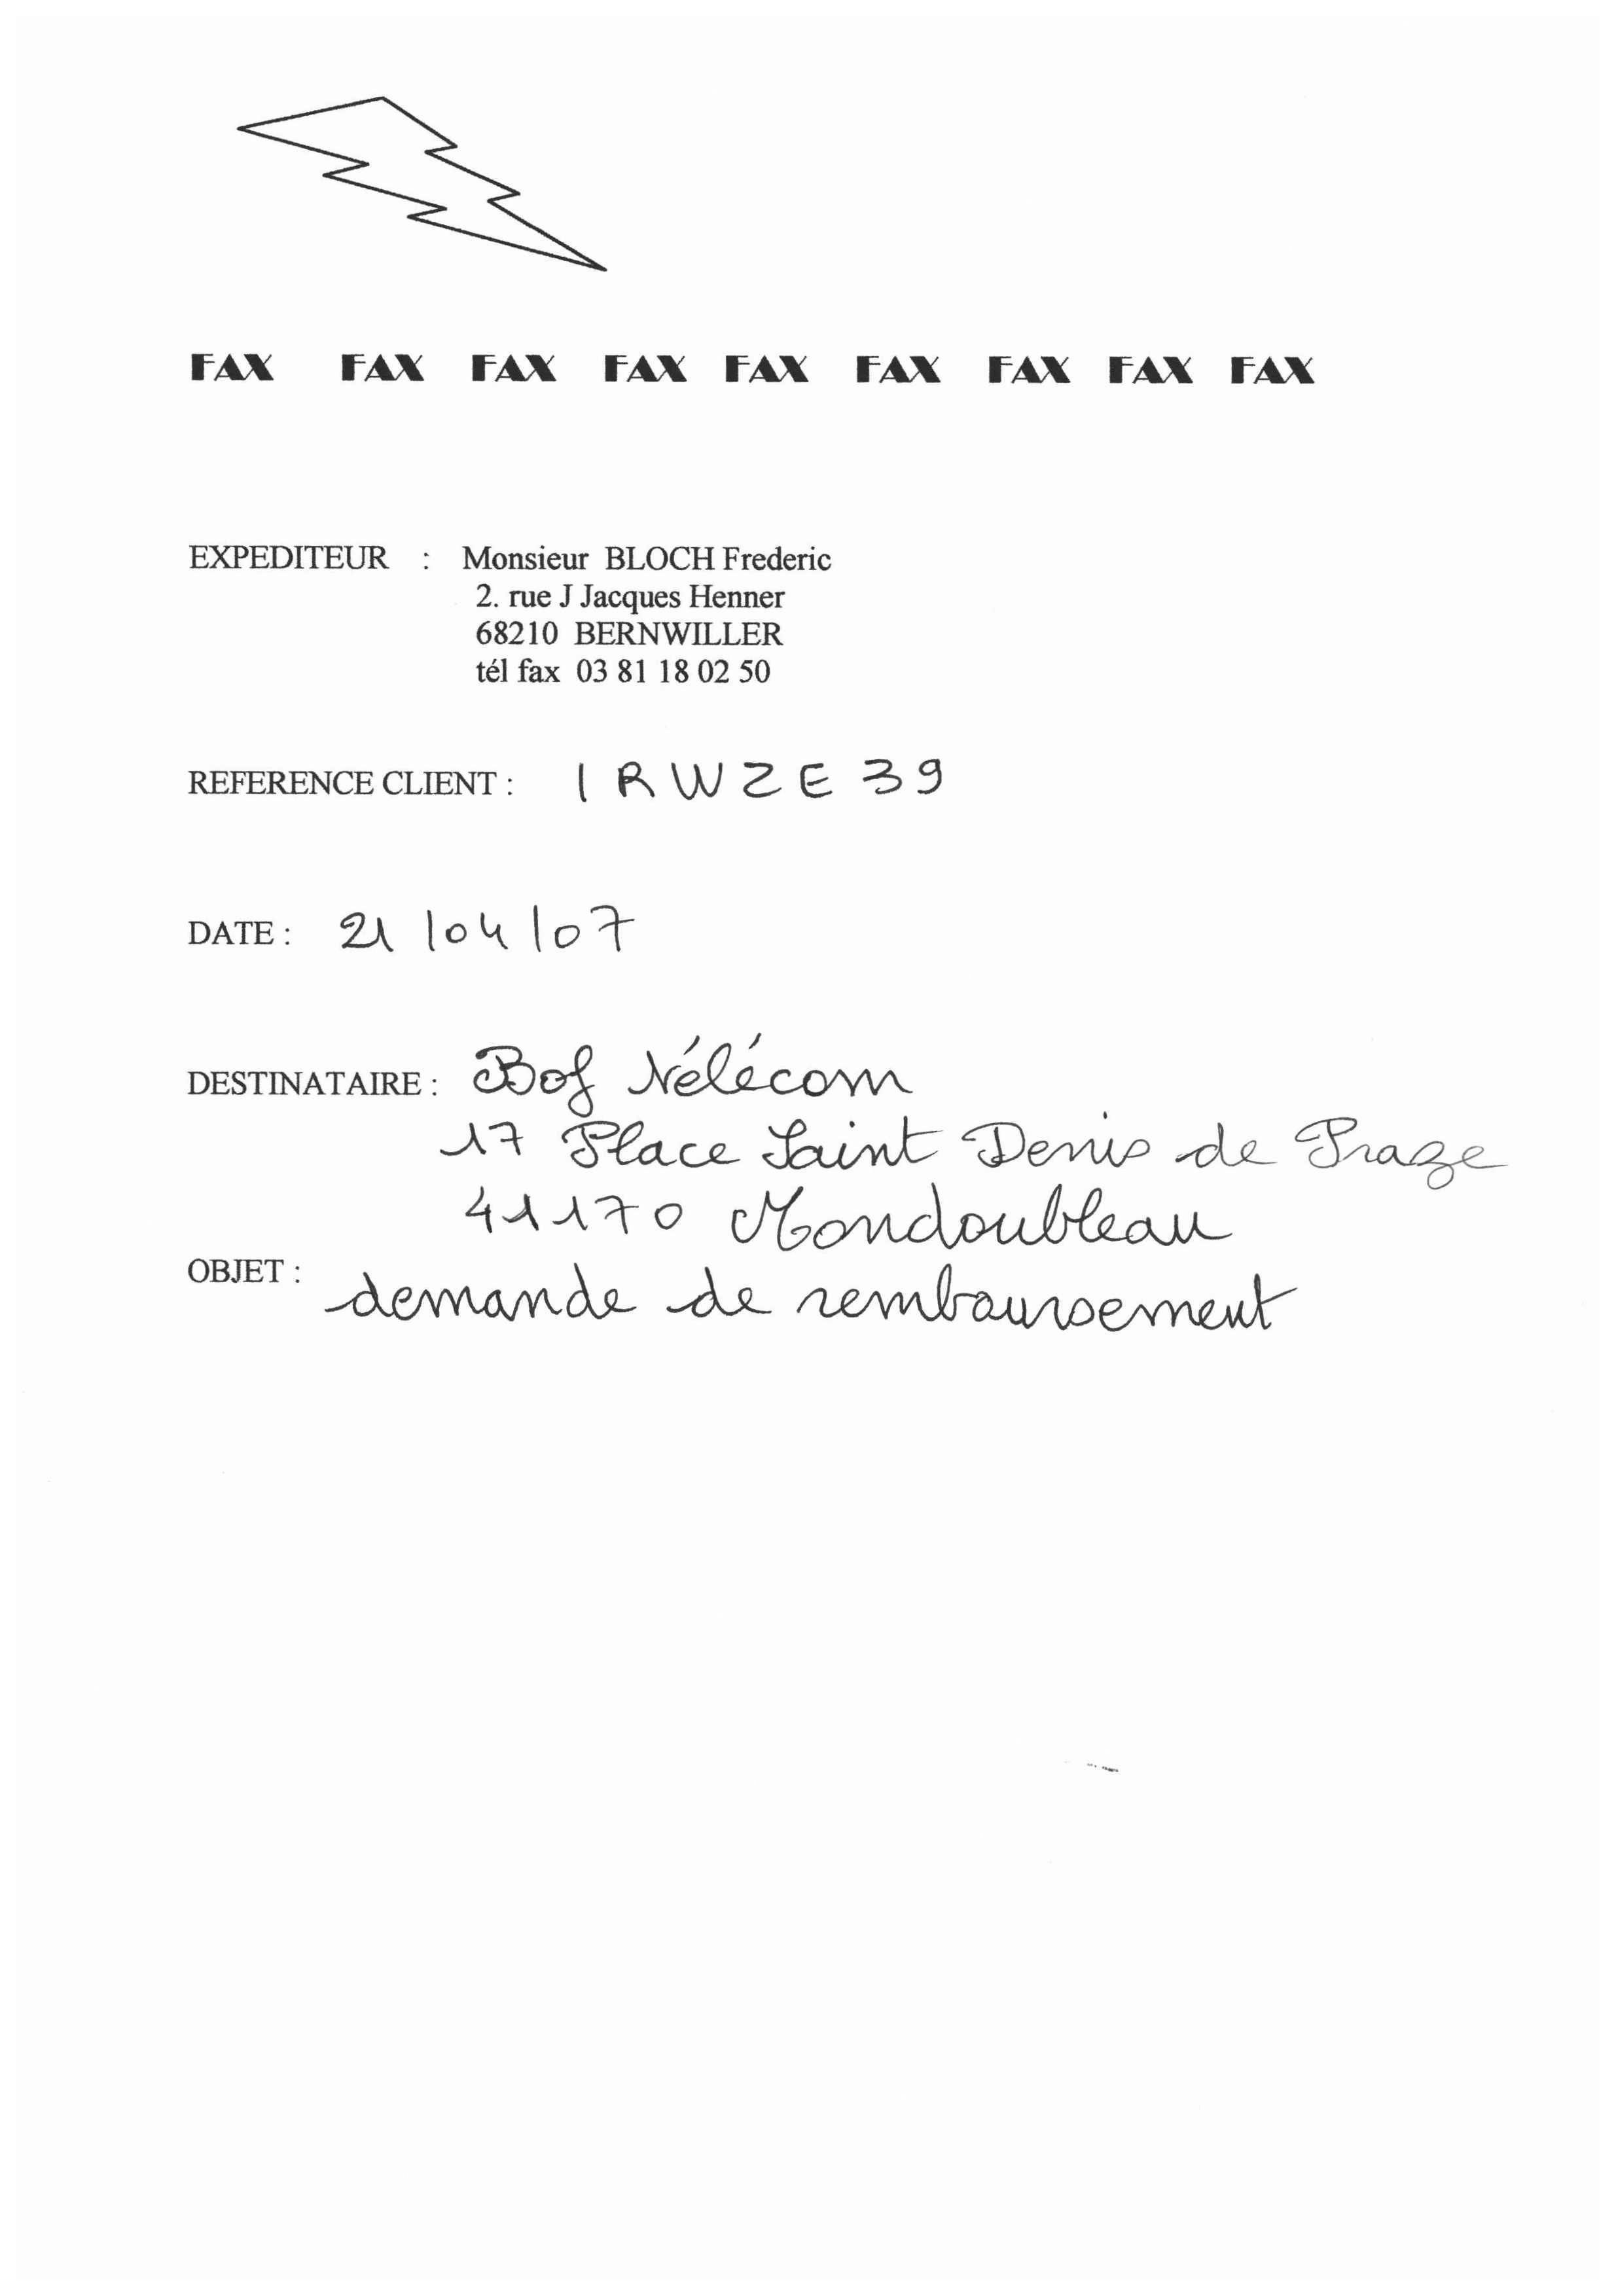 FAX FAX FAX FAX FAX FAX FAX FAX FAX
EXPEDITEUR : Monsieur BLOCH Frederic
2. rue J Jacques Henner
68210 BERNWILLER
tél fax 03 81 18 02 50
REFERENCE CLIENT : IRWZE39
DATE : 21/04/07
DESTINATAIRE : Bof Télécom
17 Place Saint Denis de Praze
41170 Mondoubleau
OBJET : demande de remboursement